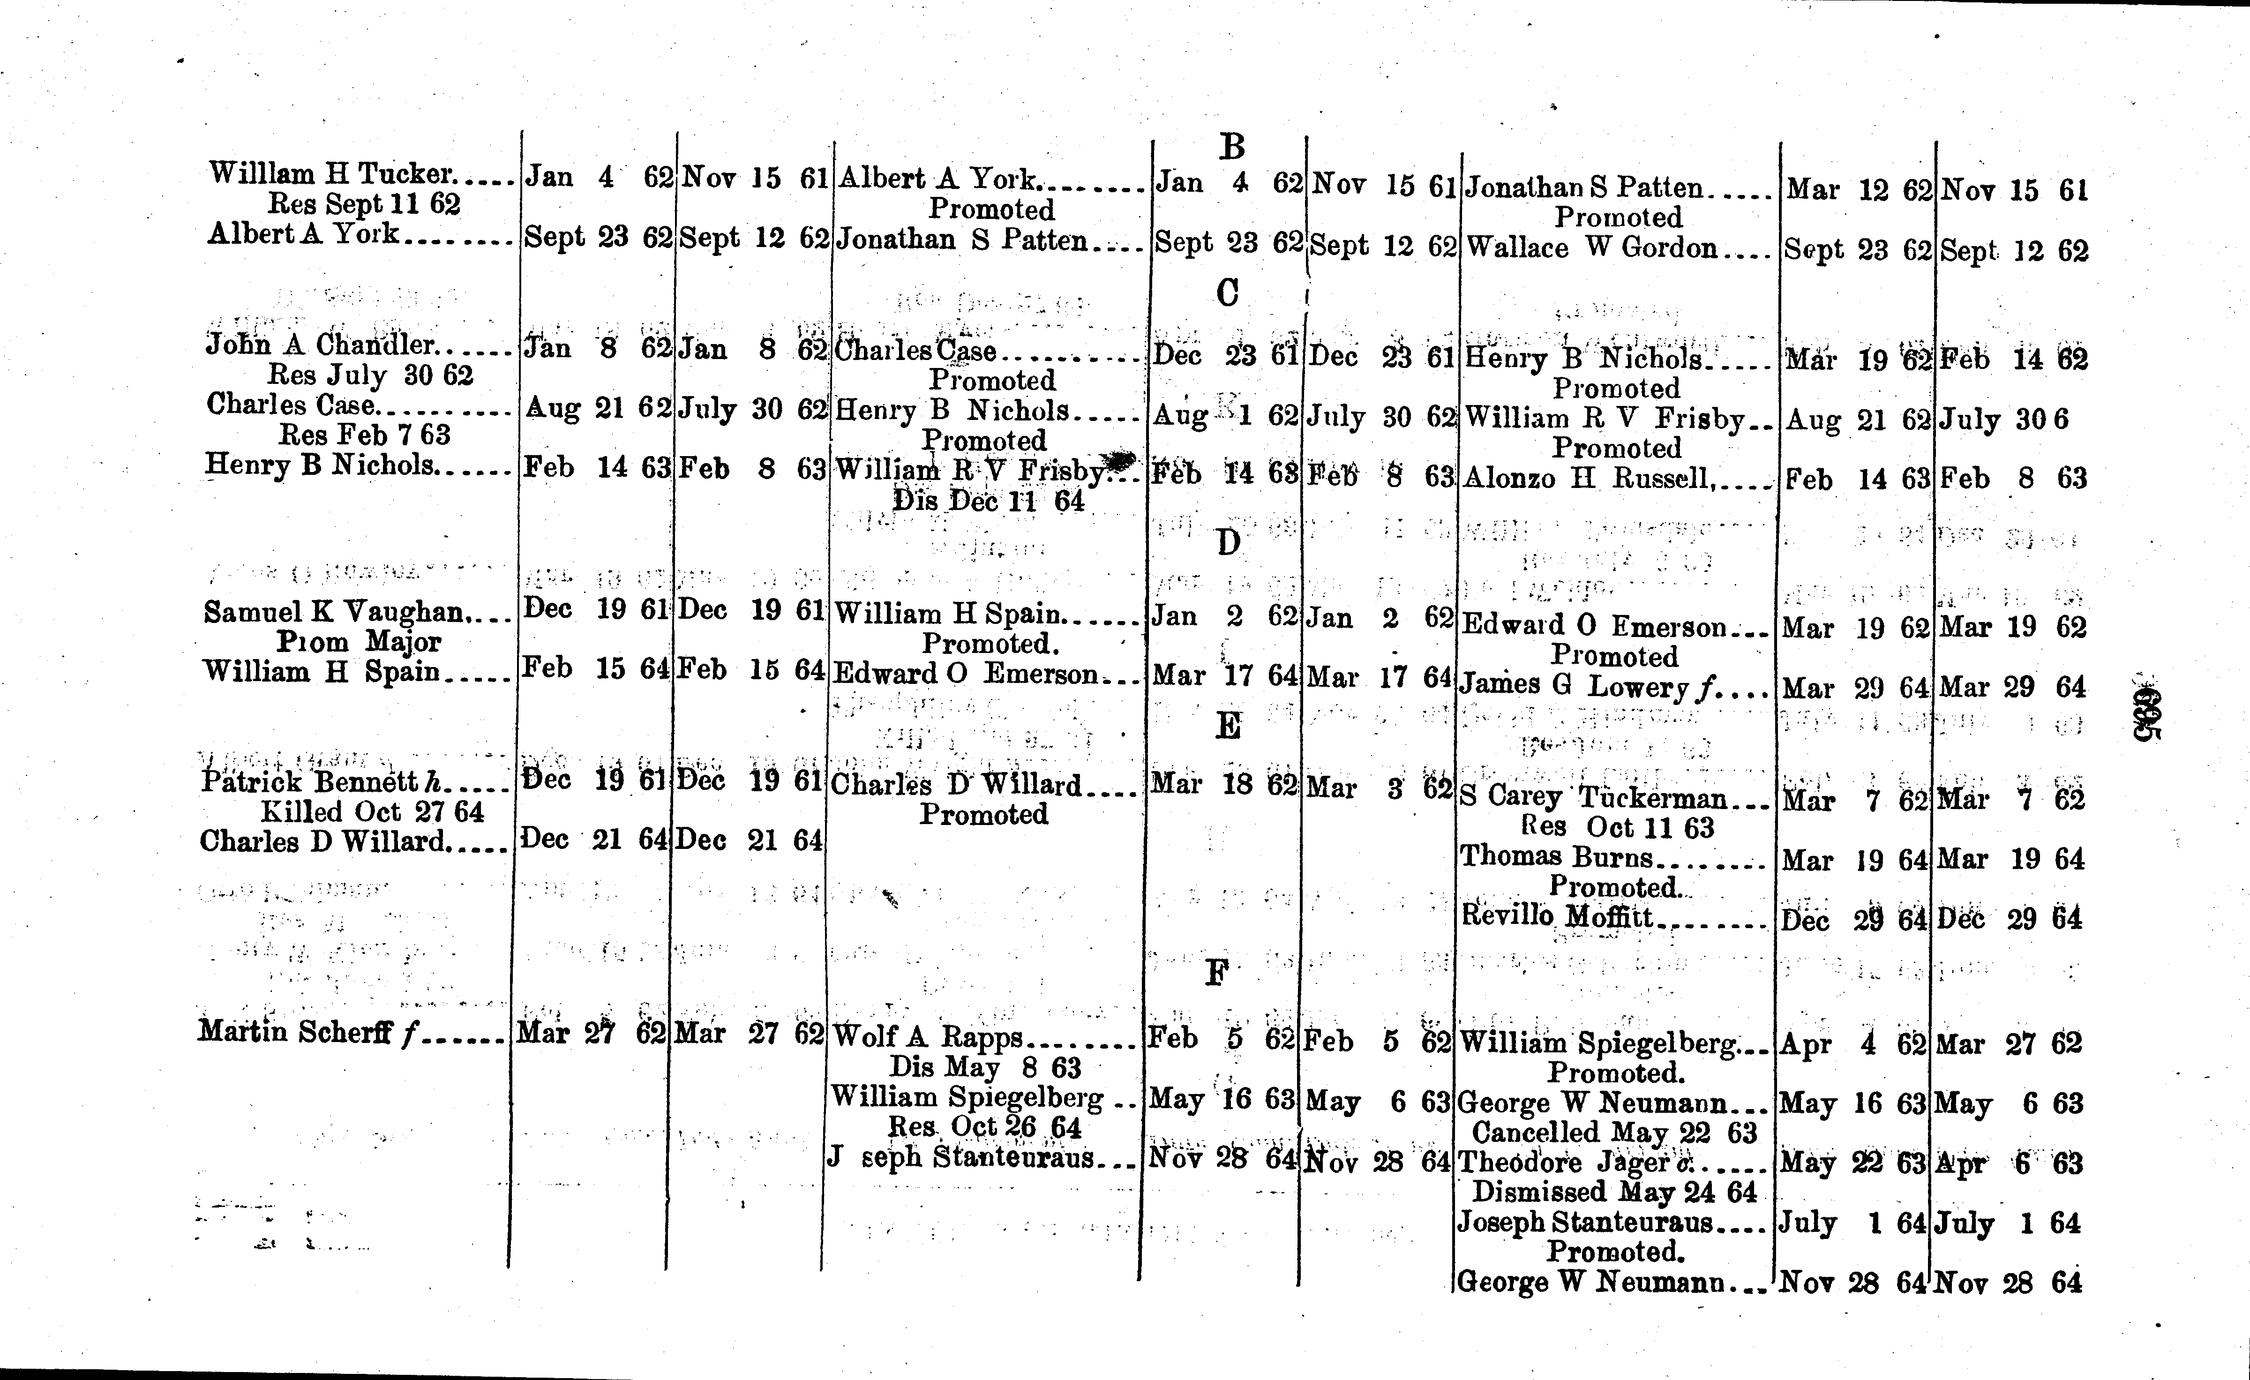 B
Willlam H Tucker..... Jan 4 62 Nov 15 61 Albert A York......... Jan 4 62 Nov 15 61 Jonathan S Patten..... Mar 12 62 Nov 15 61
Res Sept 11 62 Promoted Promoted
Albert A York........ Sept 23 62 Sept 12 62 Jonathan S Patten.... Sept 23 62 Sept 12 62 Wallace W Gordon.... Sept 23 62 Sept 12 62
C
John A Chandler...... Jan 8 62 Jan 8 62 Charles Case........... Dec 23 61 Dec 23 61 Henry B Nichols..... Mar 19 62 Feb 14 62
Res July 30 62 Promoted Promoted
Charles Case.......... Aug 21 62 July 30 62 Henry B Nichols..... Aug 1 62 July 30 62 William R V Frisby.. Aug 21 62 July 30 6
Res Feb 7 63 Promoted Promoted
Henry B Nichols...... Feb 14 63 Feb 8 63 William R V Frisby... Feb 14 63 Feb 8 63 Alonzo H Russell,.... Feb 14 63 Feb 8 63
Dis Dec 11 64
D
Samuel K Vaughan.... Dec 19 61 Dec 19 61 William H Spain...... Jan 2 62 Jan 2 62 Edward O Emerson... Mar 19 62 Mar 19 62
Prom Major Promoted. Promoted
William H Spain..... Feb 15 64 Feb 15 64 Edward O Emerson... Mar 17 64 Mar 17 64 James G Lowery f.... Mar 29 64 Mar 29 64
E
Patrick Bennett h..... Dec 19 61 Dec 19 61 Charles D Willard.... Mar 18 62 Mar 3 62 S Carey Tuckerman... Mar 7 62 Mar 7 62
Killed Oct 27 64 Promoted Res Oct 11 63
Charles D Willard..... Dec 21 64 Dec 21 64 Thomas Burns........ Mar 19 64 Mar 19 64
Promoted.
Revillo Moffitt......... Dec 29 64 Dec 29 64
F
Martin Scherff f...... Mar 27 62 Mar 27 62 Wolf A Rapps........ Feb 5 62 Feb 5 62 William Spiegelberg... Apr 4 62 Mar 27 62
Dis May 8 63 Promoted.
William Spiegelberg .. May 16 63 May 6 63 George W Neumann... May 16 63 May 6 63
Res Oct 26 64 Cancelled May 22 63
J seph Stanteuraus... Nov 28 64 Nov 28 64 Theodore Jager c...... May 22 63 Apr 6 63
Dismissed May 24 64
Joseph Stanteuraus.... July 1 64 July 1 64
Promoted.
George W Neumann... Nov 28 64 Nov 28 64